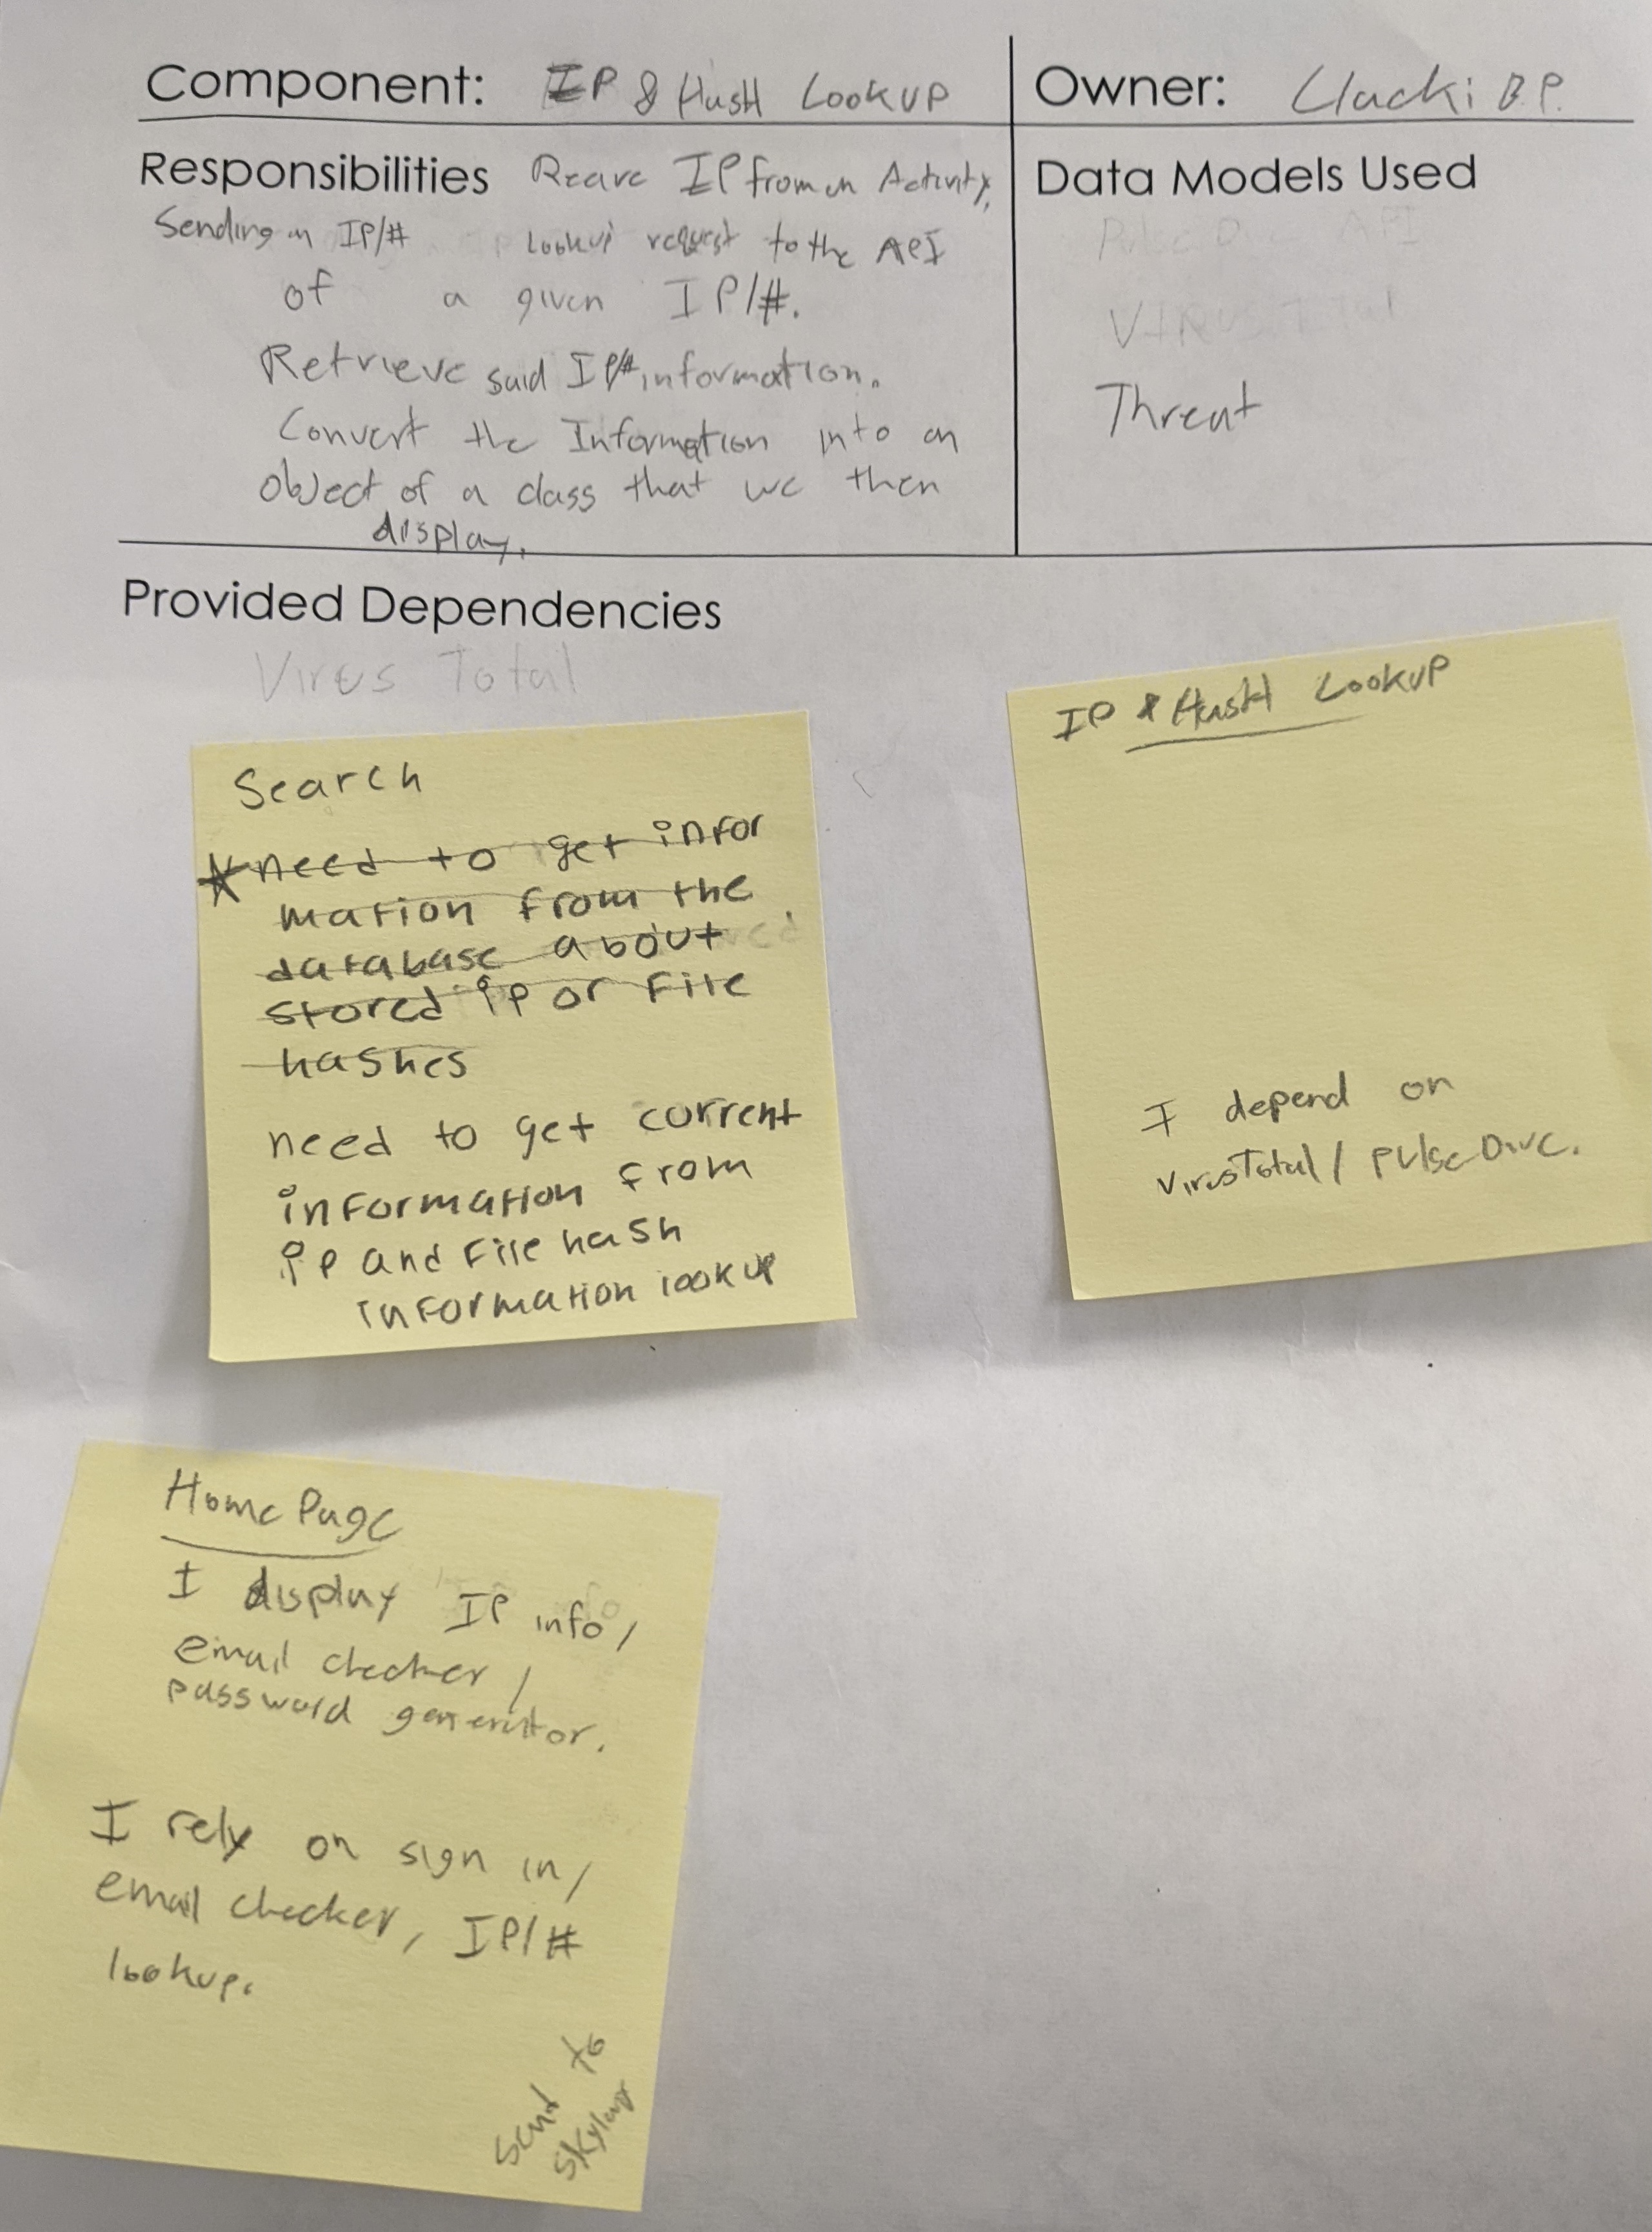 Component: IP & HasH LookuP
Owner: B.P.
Responsibilities IP from an Activity,
Sending an IP/# Lookup request to the API
of a given IP/#.
Retrieve said IP/# information.
Convert the Information into an
object of a class that we then
display.
Data Models Used
Pulse Dive API
VIRUS Total
Threat
Provided Dependencies
Virus Total
Search
need to get infor
mation from the
database about
stored ip or File
hashes
need to get current
information from
ip and File hash
information lookup
IP & HasH LookuP
I depend on
VirusTotal / PulseDive.
Home Page
I display IP info /
email checker /
password generator.
I rely on sign in /
email checker, IP/#
lookup.
Send to
Skylar